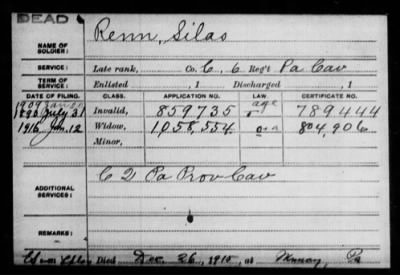 DEAD
NAME OF SOLDIER: Renn, Silas
SERVICE: Late rank, Co. C, 6 Reg't Pa Cav
TERM OF SERVICE: Enlisted , 1 Discharged , 1
DATE OF FILING. CLASS. APPLICATION NO. LAW. CERTIFICATE NO.
1890 July 31 Invalid, 859735 age 789444
1916 Jan. 12 Widow, 1,058,554 804,906
Minor,
ADDITIONAL SERVICES: C 2 Pa Prov Cav
REMARKS:
Died Dec. 26, 1915, at Muncy, Pa